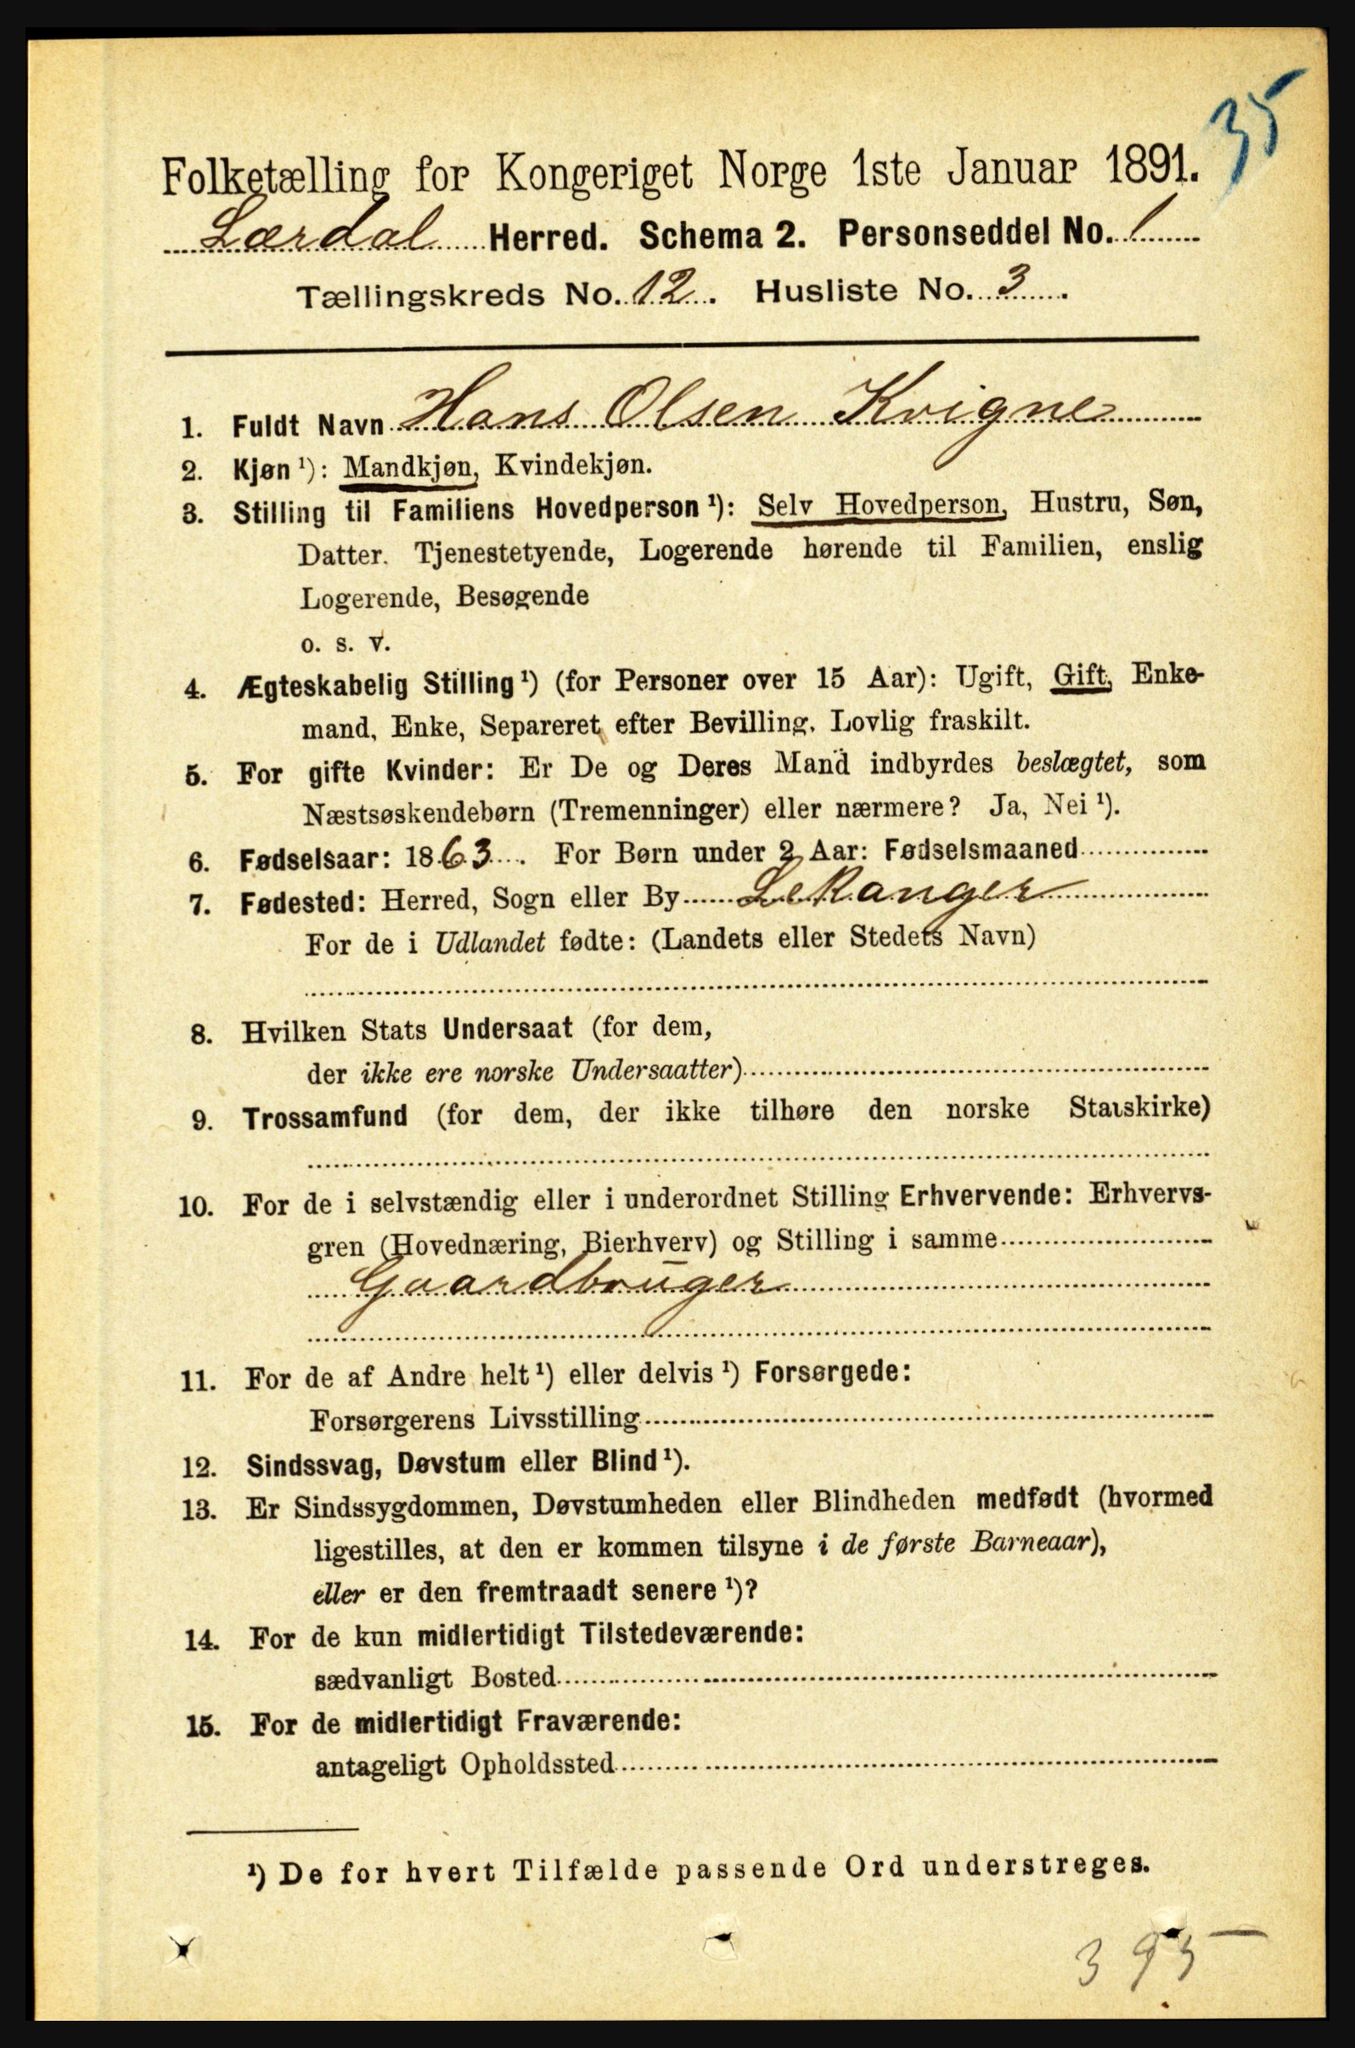 35
Folketælling for Kongeriget Norge 1ste Januar 1891.
Lærdal Herred. Schema 2. Personseddel No. 1
Tællingskreds No. 12. Husliste No. 3.
1. Fuldt Navn Hans Olsen Kvigne
2. Kjøn ¹): Mandkjøn, Kvindekjøn.
3. Stilling til Familiens Hovedperson ¹): Selv Hovedperson, Hustru, Søn,
Datter. Tjenestetyende, Logerende hørende til Familien, enslig
Logerende, Besøgende
o. s. v.
4. Ægteskabelig Stilling ¹) (for Personer over 15 Aar): Ugift, Gift, Enke-
mand, Enke, Separeret efter Bevilling, Lovlig fraskilt.
5. For gifte Kvinder: Er De og Deres Mand indbyrdes beslægtet, som
Næstsøskendebørn (Tremenninger) eller nærmere? Ja, Nei ¹).
6. Fødselsaar: 1863. For Børn under 2 Aar: Fødselsmaaned
7. Fødested: Herred, Sogn eller By Lekanger
For de i Udlandet fødte: (Landets eller Stedets Navn)
8. Hvilken Stats Undersaat (for dem,
der ikke ere norske Undersaatter)
9. Trossamfund (for dem, der ikke tilhøre den norske Statskirke)
10. For de i selvstændig eller i underordnet Stilling Erhvervende: Erhvervs-
gren (Hovednæring, Bierhverv) og Stilling i samme
Gaardbruger
11. For de af Andre helt ¹) eller delvis ¹) Forsørgede:
Forsørgerens Livsstilling
12. Sindssvag, Døvstum eller Blind ¹).
13. Er Sindssygdommen, Døvstumheden eller Blindheden medfødt (hvormed
ligestilles, at den er kommen tilsyne i de første Barneaar),
eller er den fremtraadt senere ¹)?
14. For de kun midlertidigt Tilstedeværende:
sædvanligt Bosted
15. For de midlertidigt Fraværende:
antageligt Opholdssted
¹) De for hvert Tilfælde passende Ord understreges.
395